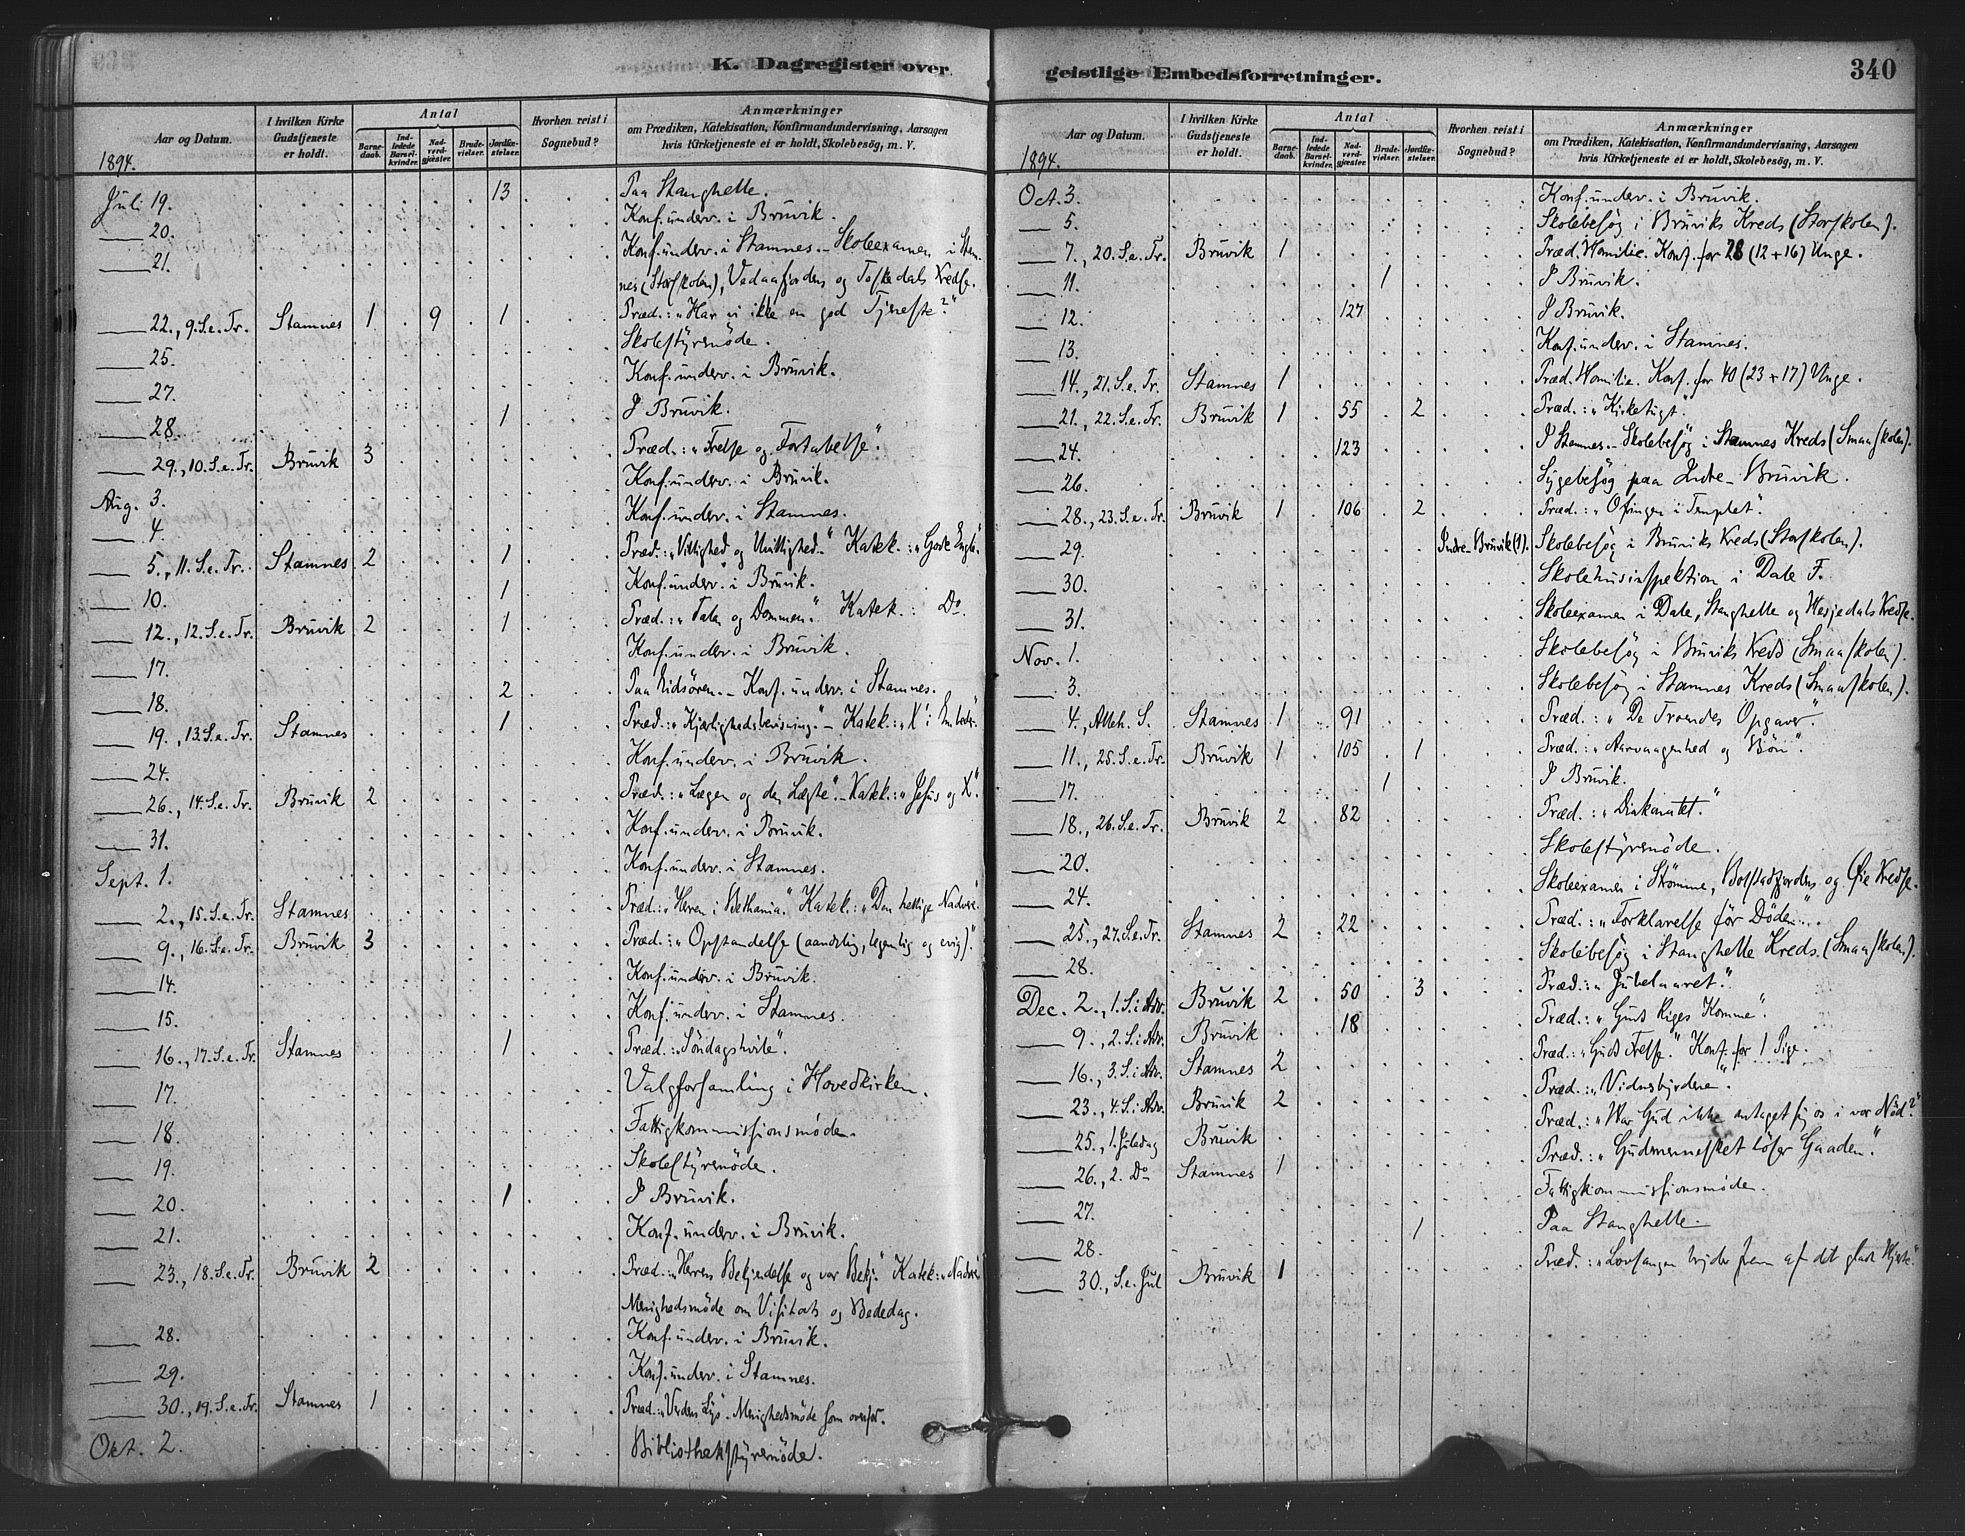 K. Dagregister over
Aar og Datum.
I hvilken Kirke Gudstjeneste er holdt.
Antal
Barnedaab.
Indledede Barselkvinder.
Nadverdgjæster.
Brudevielser.
Jordfæstelser.
Hvorhen reist i Sognebud?
Anmærkninger
om Prædiken, Katekisation, Konfirmandundervisning, Aarsagen
hvis Kirketjeneste ei er holdt, Skolebesög, m. V.
1894.
Juli 19. 13 Paa Stanghelle.
20. Konf.underv. i Bruvik.
21. Konf.underv. i Stamnes. – Skoleexamen i Stam-
nes (Storskolen), Vedaafjordens og Toskedals Kredse.
22., 9. S. e. Tr. Stamnes 1 9 1 Præd.: "Har vi ikke en god Tjeneste?"
25. Skolestyresmöde.
27. Konf.underv. i Bruvik.
28. 1 I Bruvik.
29., 10. S. e. Tr. Bruvik 3 Præd.: "Frelse og Fortabelse".
Aug. 3. Konf.underv. i Bruvik.
4. Konf.underv. i Stamnes.
5., 11. S. e. Tr. Stamnes 2 1 Præd.: "Villighed og Uvillighed." Katek.: "Gode Engle"
10. 1 Konf.underv. i Bruvik.
12., 12. S. e. Tr. Bruvik 2 1 Præd.: "Talen og Dommen." Katek.: Do.
17. Konf.underv. i Bruvik.
18. 2 Paa Eidsören. – Konf.underv. i Stamnes.
19., 13. S. e. Tr. Stamnes 1 Præd.: "Kjærlighedsbevisning." – Katek.: "X i Embeder"
24. Konf.underv. i Bruvik.
26., 14. S. e. Tr. Bruvik 2 Præd.: "Lægen og den Lægte". Katek.: "Jesus og X".
31. Konf.underv. i Bruvik.
Sept. 1. Konf.underv. i Stamnes.
2., 15. S. e. Tr. Stamnes Præd.: "Herren i Bethania." Katek.: "Den hellige Nadvere"
9., 16. S. e. Tr. Bruvik 3 Præd.: "Opstandelse (aandelig, legemlig og evig)."
14. Konf.underv. i Bruvik.
15. Konf.underv. i Stamnes.
16., 17. S. e. Tr. Stamnes 1 Præd.: "Söndagshvile".
17. Valgforsamling i Hovedkirken.
18. Fattigkommissionsmöde.
19. Skolestyresmöde.
20. 1 I Bruvik.
21. Konf.underv. i Bruvik.
23., 18. S. e. Tr. Bruvik 2 Præd.: "Herrens Bekjendelse og vor Bekj." Katek.: "Nadvere"
Menighedsmöde om Visitats og Bededag.
28. Konf.underv. i Bruvik.
29. Konf.underv. i Stamnes.
30., 19. S. e. Tr. Stamnes 1 Præd.: "Verdens Lys". Menighedsmöde som ovenfor.
Okt. 2. Bibliothekstyresmöde.
geistlige Embedsforretninger.
340
Aar og Datum.
I hvilken Kirke Gudstjeneste er holdt.
Antal
Barnedaab.
Indledede Barselkvinder.
Nadverdgjæster.
Brudevielser.
Jordfæstelser.
Hvorhen reist i Sognebud?
Anmærkninger
om Prædiken, Katekisation, Konfirmandundervisning, Aarsagen
hvis Kirketjeneste ei er holdt, Skolebesög, m. V.
1894.
Oct. 3. Konf.underv. i Bruvik.
5. Skolebesög i Bruviks Kreds (Storskolen).
7., 20. S. e. Tr. Bruvik 1 Præd. Homilie. Konf. for 28 (12+16) Unge.
11. 1 I Bruvik.
12. 127 I Bruvik.
13. Konf.underv. i Stamnes.
14., 21. S. e. Tr. Stamnes 1 Præd. Homilie. Konf. for 40 (23+17) Unge.
21., 22. S. e. Tr. Bruvik 1 55 2 Præd.: "Kirketugt".
24. 123 I Stamnes. – Skolebesög i Stamnes Kreds (Smaaskolen).
26. Sygebesög paa Indre-Bruvik.
28., 23. S. e. Tr. Bruvik 1 106 2 Præd.: "Ofringen i Templet".
29. Indre-Bruvik (1). Skolebesög i Bruviks Kreds (Storskolen).
30. Skolehusinspektion i Dale F.
31. Skoleexamen i Dale, Stanghelle og Hesjedals Kredse.
Nov. 1. Skolebesög i Bruviks Kreds (Smaaskolen).
3. Skolebesög i Stamnes Kreds (Smaaskolen).
4., Alleh. S. Stamnes 1 91 Præd.: "De Troendes Opgaver".
11., 25. S. e. Tr. Bruvik 1 105 1 Præd.: "Aarvaagenhed og Bön".
17. 1 I Bruvik.
18., 26. S. e. Tr. Bruvik 2 82 Præd.: "Diakonatet".
20. Skolestyresmöde.
24. Skoleexamen i Stömme, Bolstadfjordens og Öie Kredse.
25., 27. S. e. Tr. Stamnes 2 22 Præd.: "Forklarelse för Döden".
28. Skolebesög i Stanghelle Kreds (Smaaskolen).
Dec. 2., 1. S. i Adv. Bruvik 2 50 3 Præd.: "Jubelaaret".
9., 2. S. i Adv. Bruvik 18 Præd.: "Guds Riges Komme".
16., 3. S. i Adv. Stamnes 2 Præd.: "Guds Frelse." Konf. for 1 Pige.
23., 4. S. i Adv. Bruvik 2 Præd.: "Vidnesbyrdene".
25., 1. Juledag Bruvik Præd.: "Har Gud ikke antaget sig os i vor Nöd?"
26., 2. Do Stamnes 1 Præd.: "Gudmennesket löser Gaaden."
27. Fattigkommissionsmöde.
28. 1 Paa Stanghelle.
30., S. e. Jul Bruvik 1 Præd.: "Lovsangen bryder frem af det glade Hjerte"